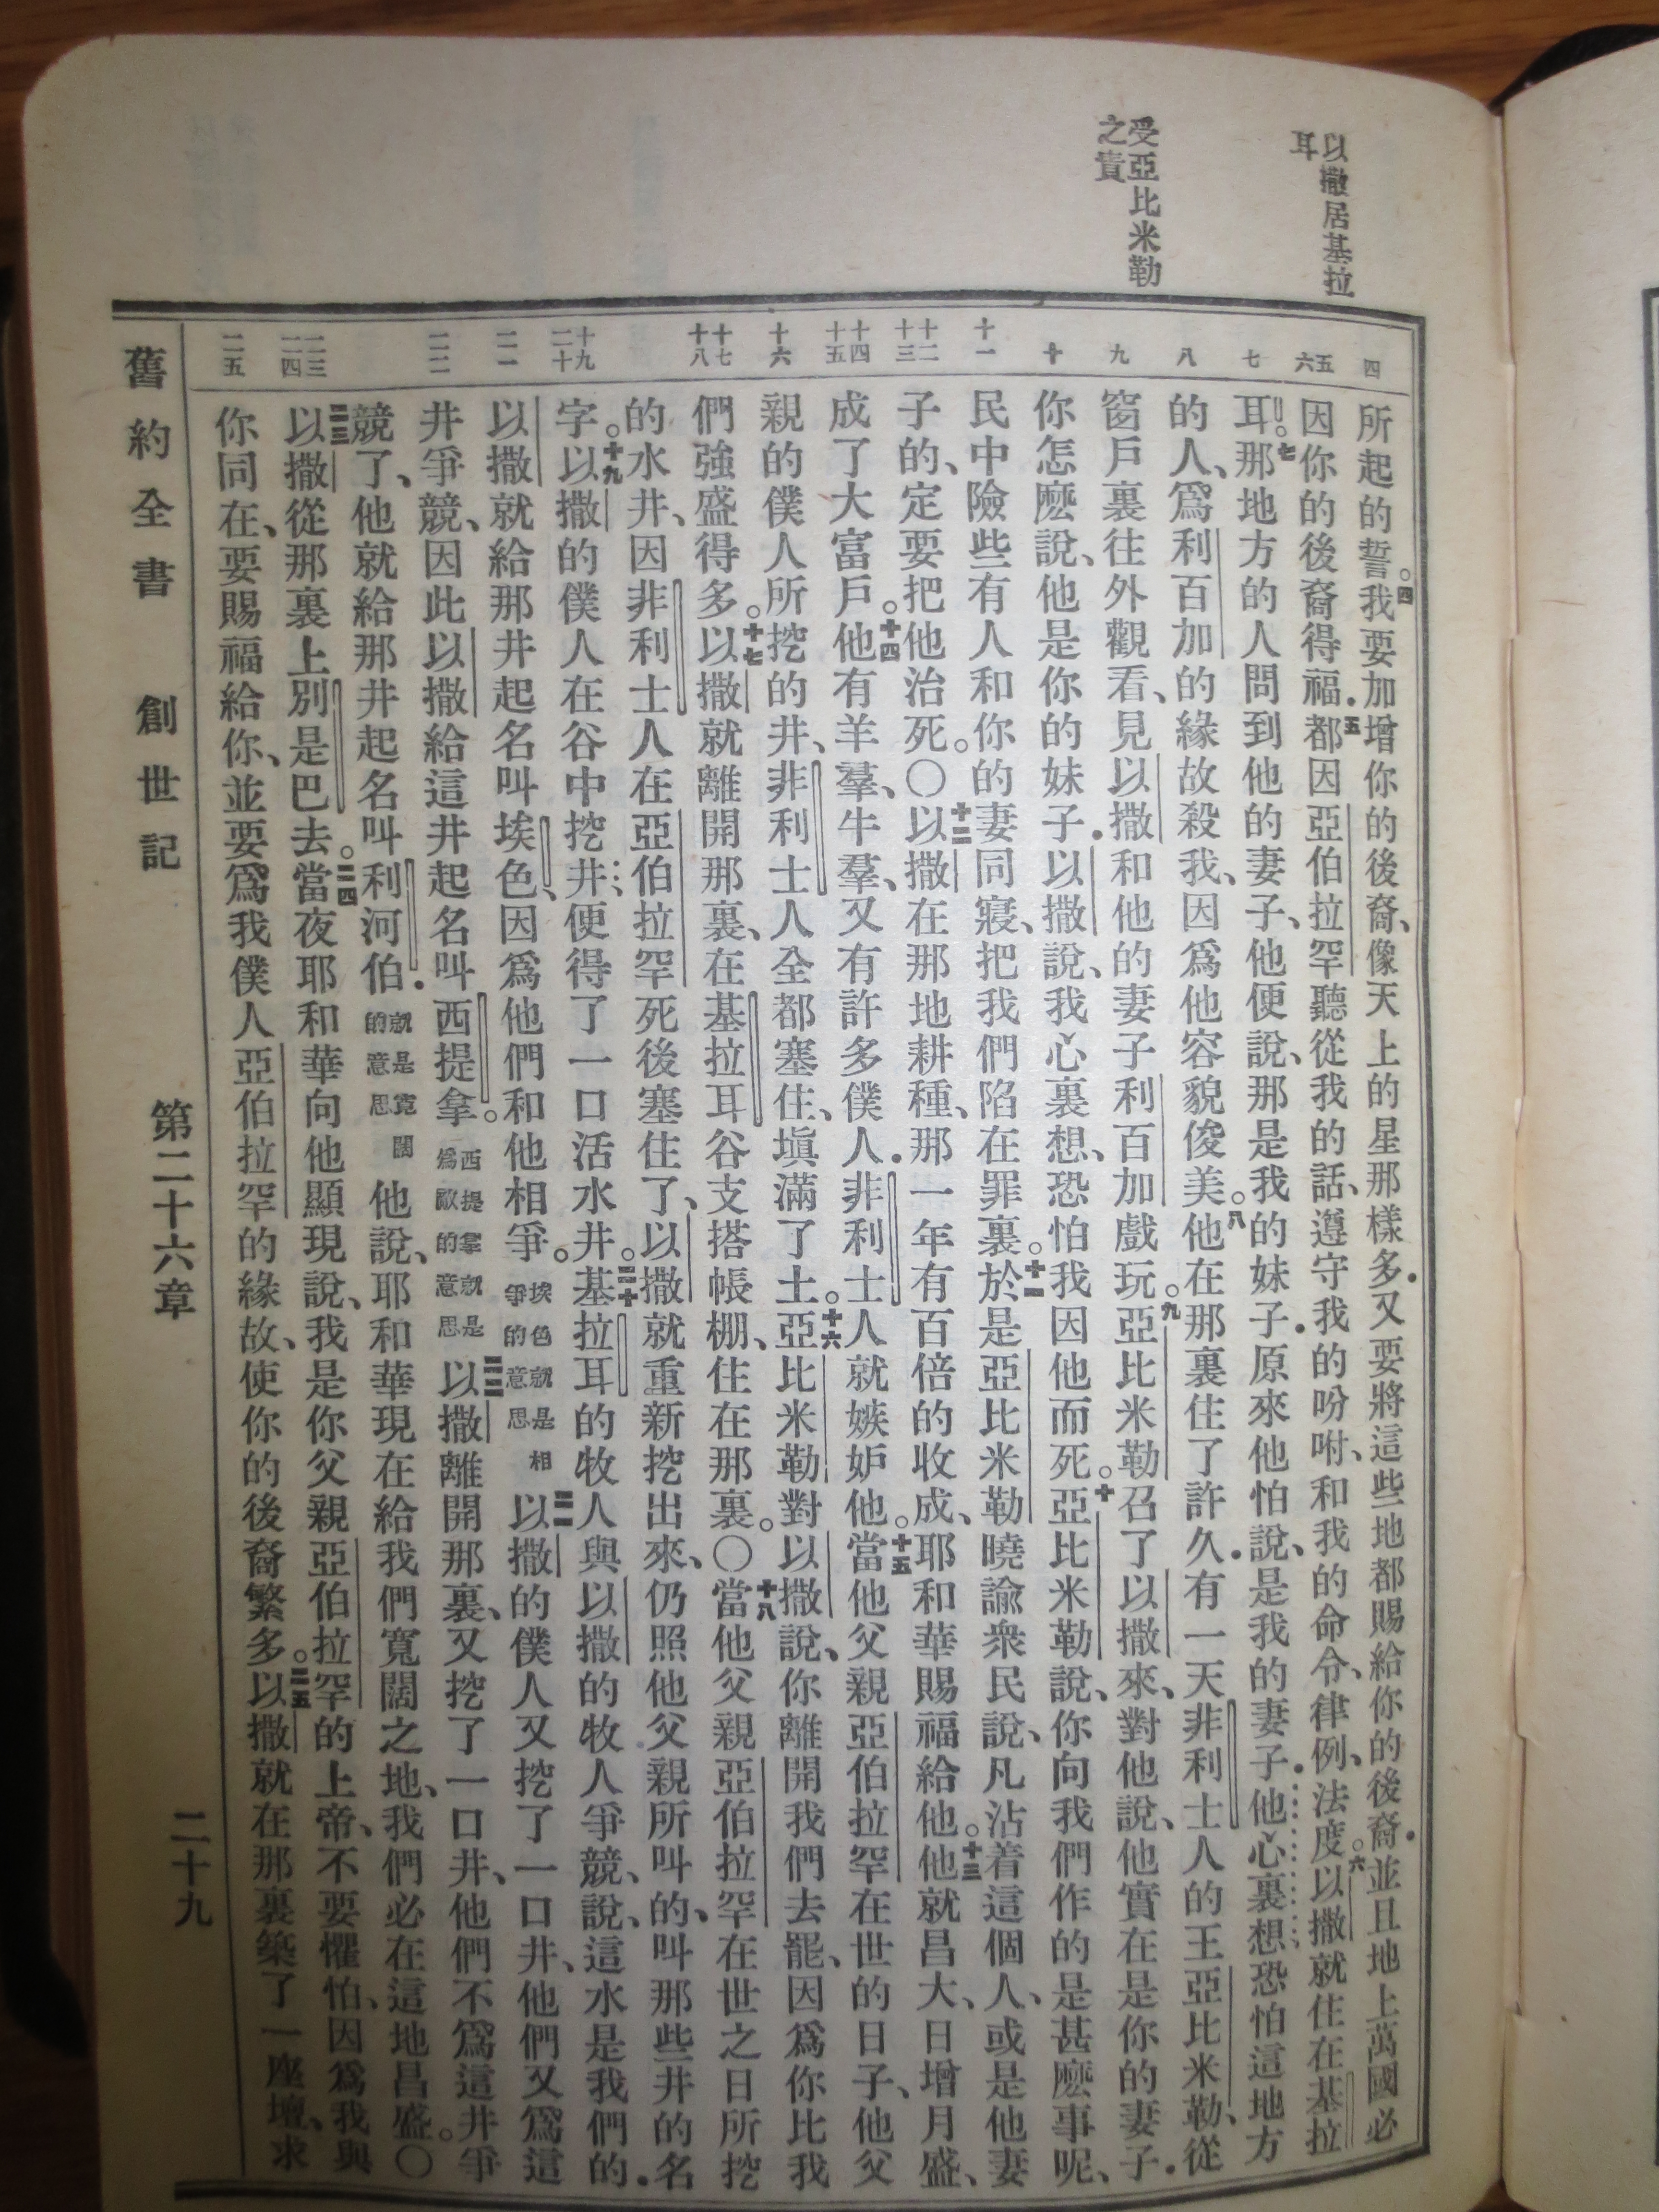 以撒居基拉
耳
受亞比米勒
之責
四
五
六
七
八
九
十
十一
十二
十三
十四
十五
十六
十七
十八
十九
二十
二一
二二
二三
二四
二五
所起的誓。四我要加增你的後裔、像天上的星那樣多．又要將這些地都賜給你的後裔．並且地上萬國必
因你的後裔得福．五都因亞伯拉罕聽從我的話、遵守我的吩咐、和我的命令、律例、法度。六以撒就住在基拉
耳。七那地方的人問到他的妻子、他便說、那是我的妹子．原來他怕說、是我的妻子．他心裏想、恐怕這地方
的人、爲利百加的緣故殺我、因爲他容貌俊美。八他在那裏住了許久．有一天非利士人的王亞比米勒、從
窗戶裏往外觀看、見以撒和他的妻子利百加戲玩。九亞比米勒召了以撒來、對他說、他實在是你的妻子．
你怎麽說、他是你的妹子．以撒說、我心裏想、恐怕我因他而死。十亞比米勒說、你向我們作的是甚麽事呢、
民中險些有人和你的妻同寢、把我們陷在罪裏。十一於是亞比米勒曉諭衆民說、凡沾着這個人、或是他妻
子的、定要把他治死。〇十二以撒在那地耕種、那一年有百倍的收成、耶和華賜福給他。十三他就昌大、日增月盛、
成了大富戶。十四他有羊羣、牛羣、又有許多僕人．非利士人就嫉妒他。十五當他父親亞伯拉罕在世的日子、他父
親的僕人所挖的井、非利士人全都塞住、塡滿了土。十六亞比米勒對以撒說、你離開我們去罷、因爲你比我
們強盛得多。十七以撒就離開那裏、在基拉耳谷支搭帳棚、住在那裏。〇十八當他父親亞伯拉罕在世之日所挖
的水井、因非利士人在亞伯拉罕死後塞住了、以撒就重新挖出來、仍照他父親所叫的、叫那些井的名
字。十九以撒的僕人在谷中挖井、便得了一口活水井。二十基拉耳的牧人與以撒的牧人爭競、說、這水是我們的．
以撒就給那井起名叫埃色、因爲他們和他相爭。埃色就是相爭的意思二一以撒的僕人又挖了一口井、他們又爲這
井爭競、因此以撒給這井起名叫西提拿。西提拿就是爲敵的意思二二以撒離開那裏、又挖了一口井、他們不爲這井爭
競了、他就給那井起名叫利河伯．就是寬闊的意思他說、耶和華現在給我們寬闊之地、我們必在這地昌盛。〇
二三以撒從那裏上別是巴去。二四當夜耶和華向他顯現說、我是你父親亞伯拉罕的上帝、不要懼怕、因爲我與
你同在、要賜福給你、並要爲我僕人亞伯拉罕的緣故、使你的後裔繁多。二五以撒就在那裏築了一座壇、求
舊約全書　創世記　第二十六章　二十九